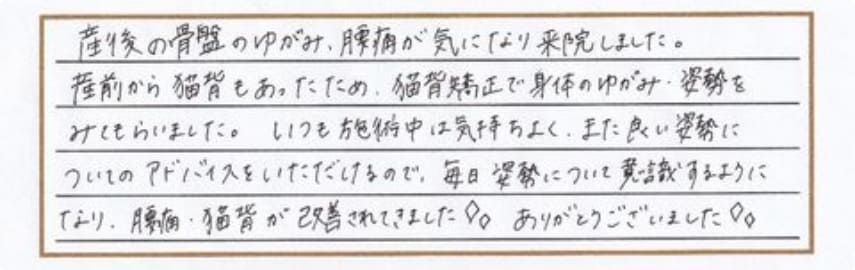 産後の骨盤のゆがみ、腰痛が気になり来院しました。
産前から猫背もあったため、猫背矯正で身体のゆがみ・姿勢を
みてもらいました。 いつも施術中は気持ちよく、また良い姿勢に
ついてのアドバイスをいただけるので、毎日姿勢について意識するように
なり、腰痛・猫背が改善されてきました ありがとうございました